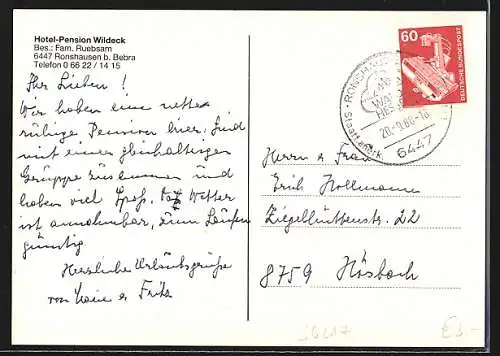 Hotel-Pension Wildeck
Bes.: Fam. Ruebsam
6447 Ronshausen b. Bebra
Telefon 0 66 22 / 14 15
Ihr Lieben !
Wir haben eine nette
ruhige Pension hier. Sind
mit einer gleichaltrigen
Gruppe zusammen und
haben viel Spaß. Das Wetter
ist annehmbar, zum Laufen
günstig
Herzliche Urlaubsgrüße
von & Fritz
60
DEUTSCHE BUNDESPOST
6447
Herrn & Frau
Erich Hollmann
Ziegelhüttenstr. 22
8759 Hösbach